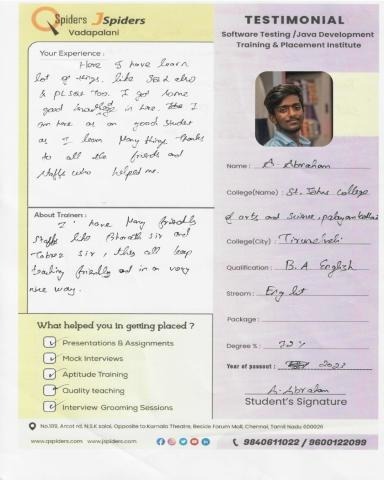 QSpiders JSpiders
Vadapalani
Your Experience :
Here I have learn
lot of things. like SQL also
& PLSQL Too. I got some
good knowledge in here. I
am here as an good student
as I learn Many things. Thanks
to all the friends and
staffs who helped me.
About Trainers :
I have Many friendly
staffs like Bharath sir and
sir, they all keep
teaching friendly and in a very
nice way.
What helped you in getting placed ?
Presentations & Assignments
Mock Interviews
Aptitude Training
Quality teaching
Interview Grooming Sessions
TESTIMONIAL
Software Testing /Java Development
Training & Placement Institute
Name : A. Abraham
College(Name) : St. Johns College
of arts and science, palayamkottai
College(City) : Tirunelveli
Qualification : B.A English
Stream : English
Package :
Degree % : 72%
Year of passout : 2023
A. Abraham
Student's Signature
No.189, Arcot rd, N.S.K salai, Opposite to Kamala Theatre, Beside Forum Mall, Chennai, Tamil Nadu 600026
www.qspiders.com www.jspiders.com
9840611022 / 9600122099